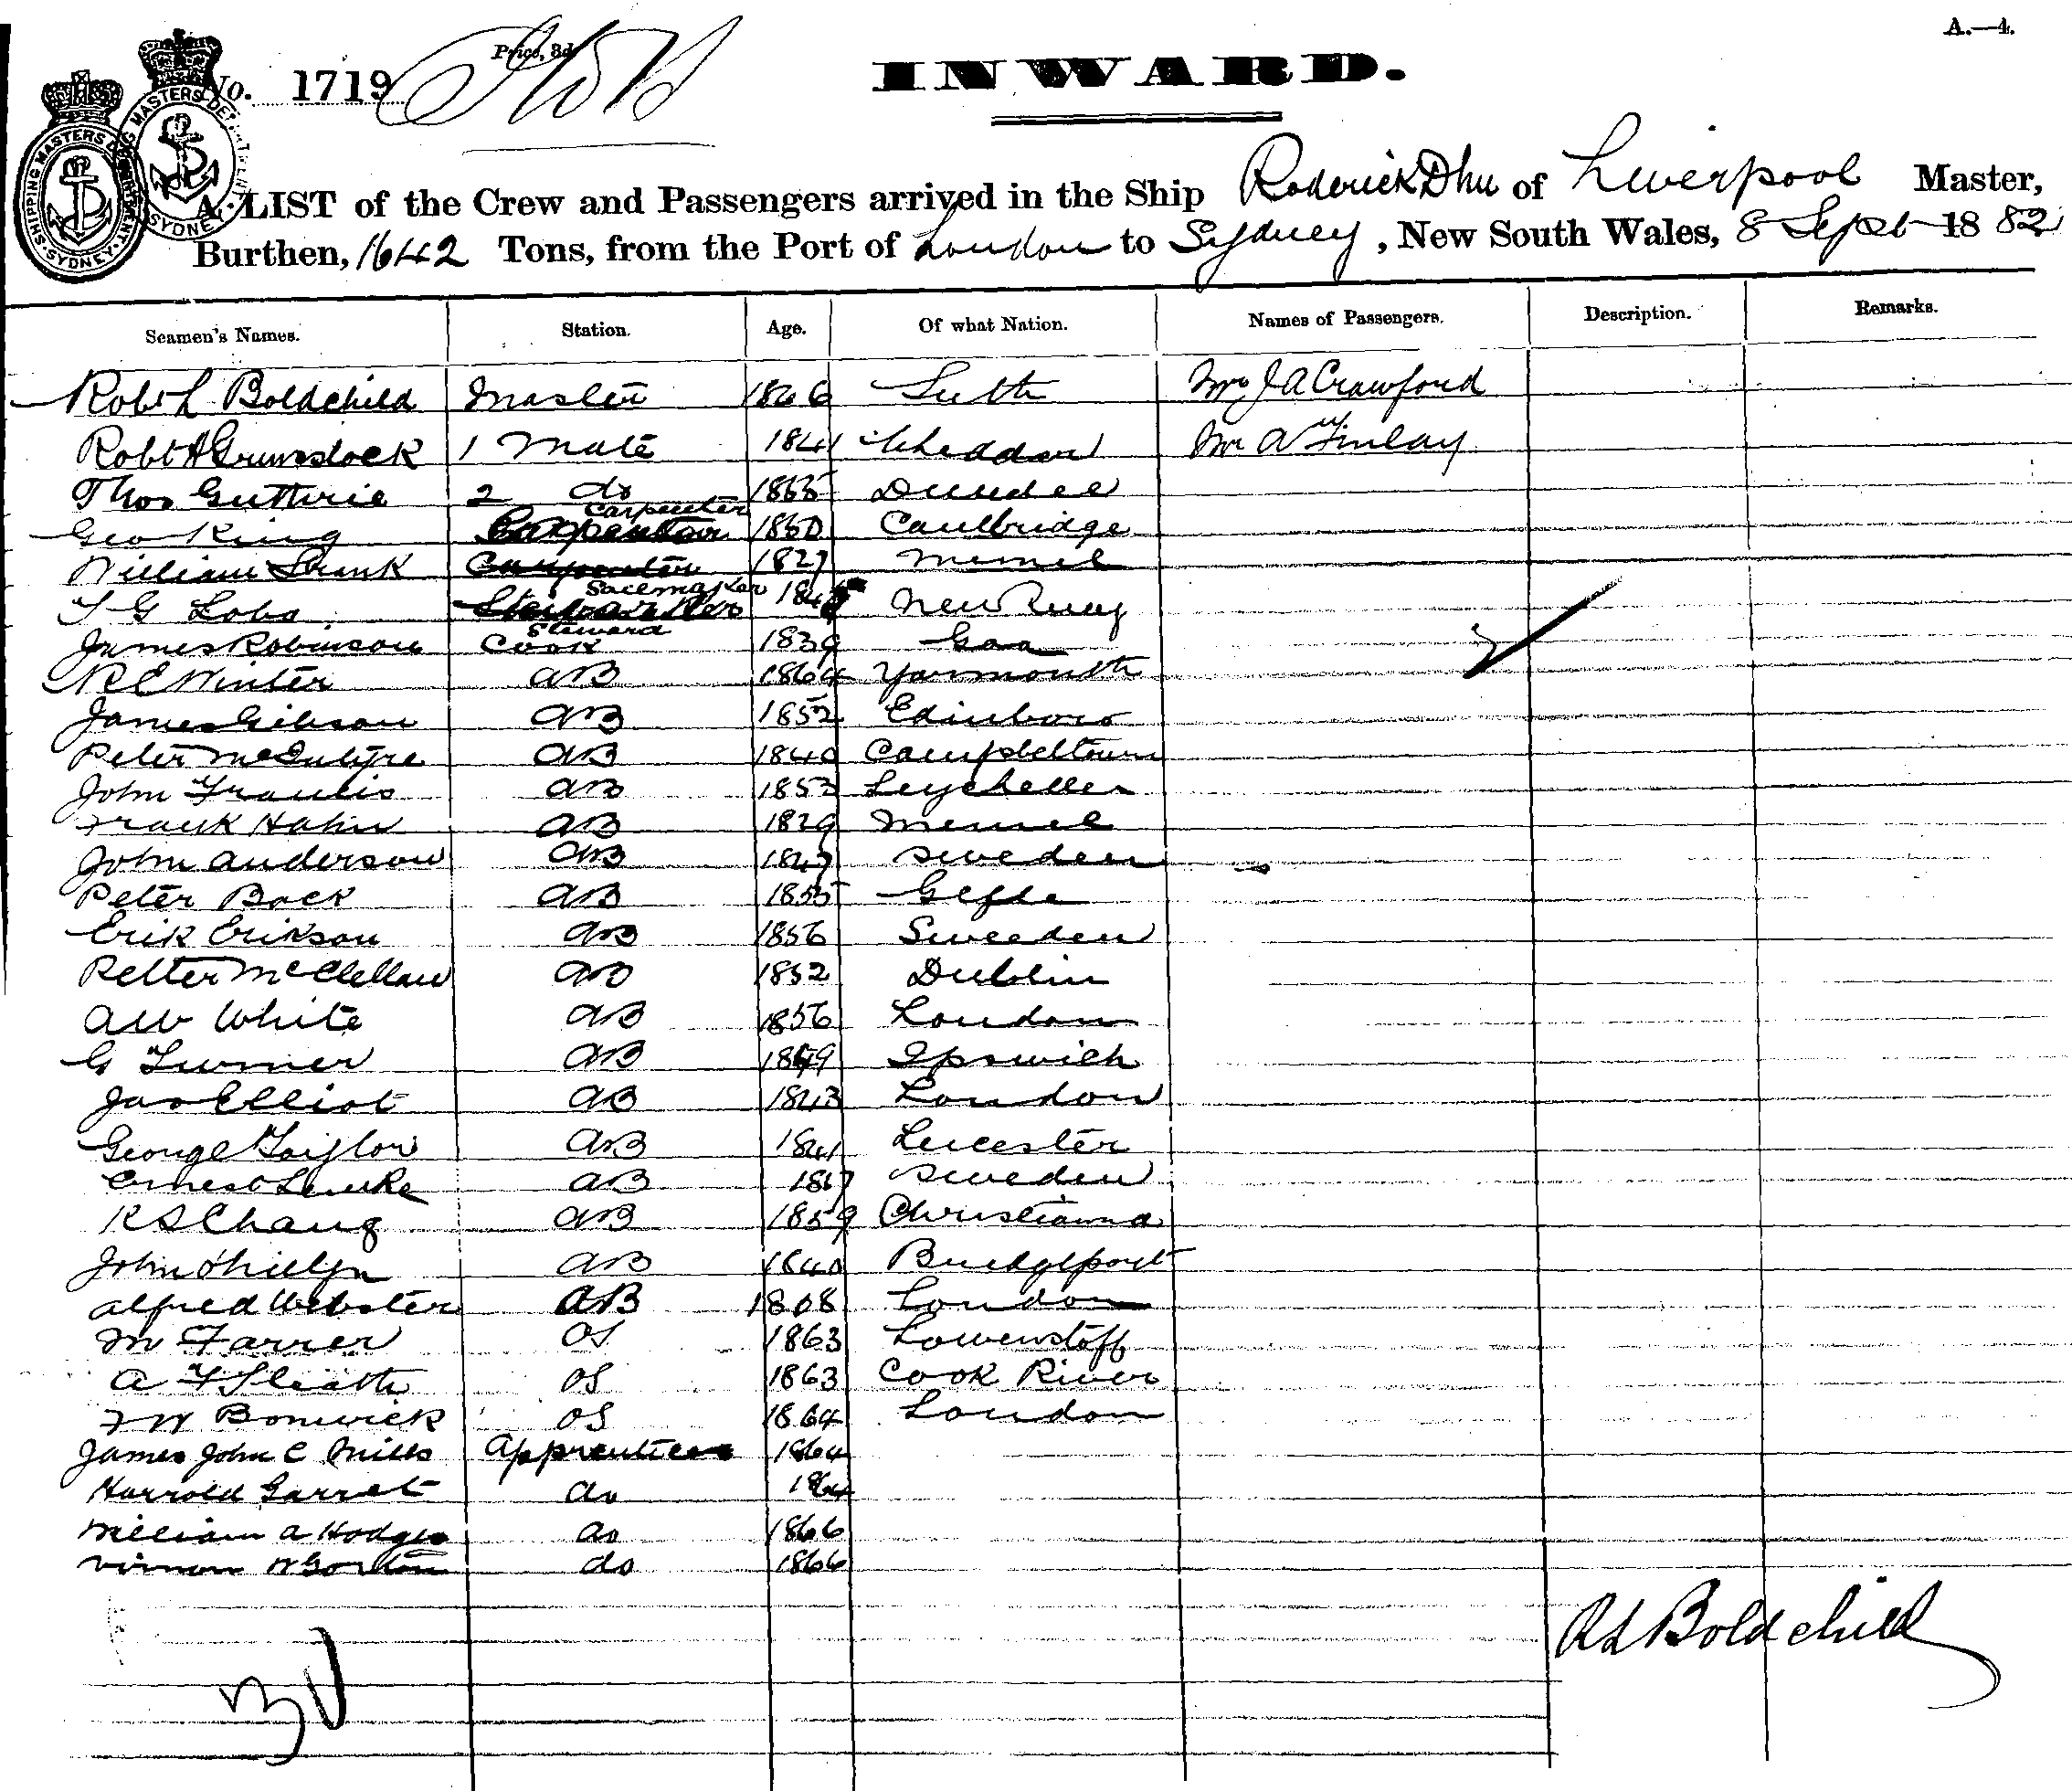 A.—4.
Price, 3d
No. 1719
INWARD.
SHIPPING MASTERS DEPARTMENT SYDNEY
A LIST of the Crew and Passengers arrived in the Ship Roderick Dhu of Liverpool Master,
Burthen, 1642 Tons, from the Port of London to Sydney, New South Wales, 8 Sept 1882
Seamen's Names. Station. Age. Of what Nation. Names of Passengers. Description. Remarks.
Robt L Boldchild Master 1846 Leith Mr J A Crawford
Robt A Grumslock 1 Mate 1841 Cheddar Mr A Finlay
Thos Guthrie 2 do 1855 Dundee
Geo King Carpenter 1850
William Carpenter 1827 Memel
T G Lobs Sailmaker New Quay
James Robinson Cook Steward 1839 Goa
R E Winter AB 1864 Yarmouth
James Gibson AB 1852 Edinboro
Peter McIntyre AB 1840 Campbeltown
John Francis AB 1852 Seychelles
Frank Hahn AB 1829 Memel
John Anderson AB 1847 Sweden
Peter Back AB 1855 Gefle
Erik Erikson AB 1856 Sweeden
Petter McClellan AB 1852 Dublin
AW White AB 1856 London
G Turner AB 1849 Ipswich
Jas Elliot AB 1843 London
George Taylor AB 1841 Leicester
Ernest AB Sweden
AB 1859 Christianna
John AB 1840 Bridgeport
Alfred Webster AB London
M Farrer OS 1863 Lowenstoff
A F Sleath OS 1863 Cook River
F W Bonwick OS 1864 London
James John C Mills Apprentices 1864
Harrold Garret do 1864
William A Hodges do 1866
Vernon W Gorton do 1866
R L Boldchild